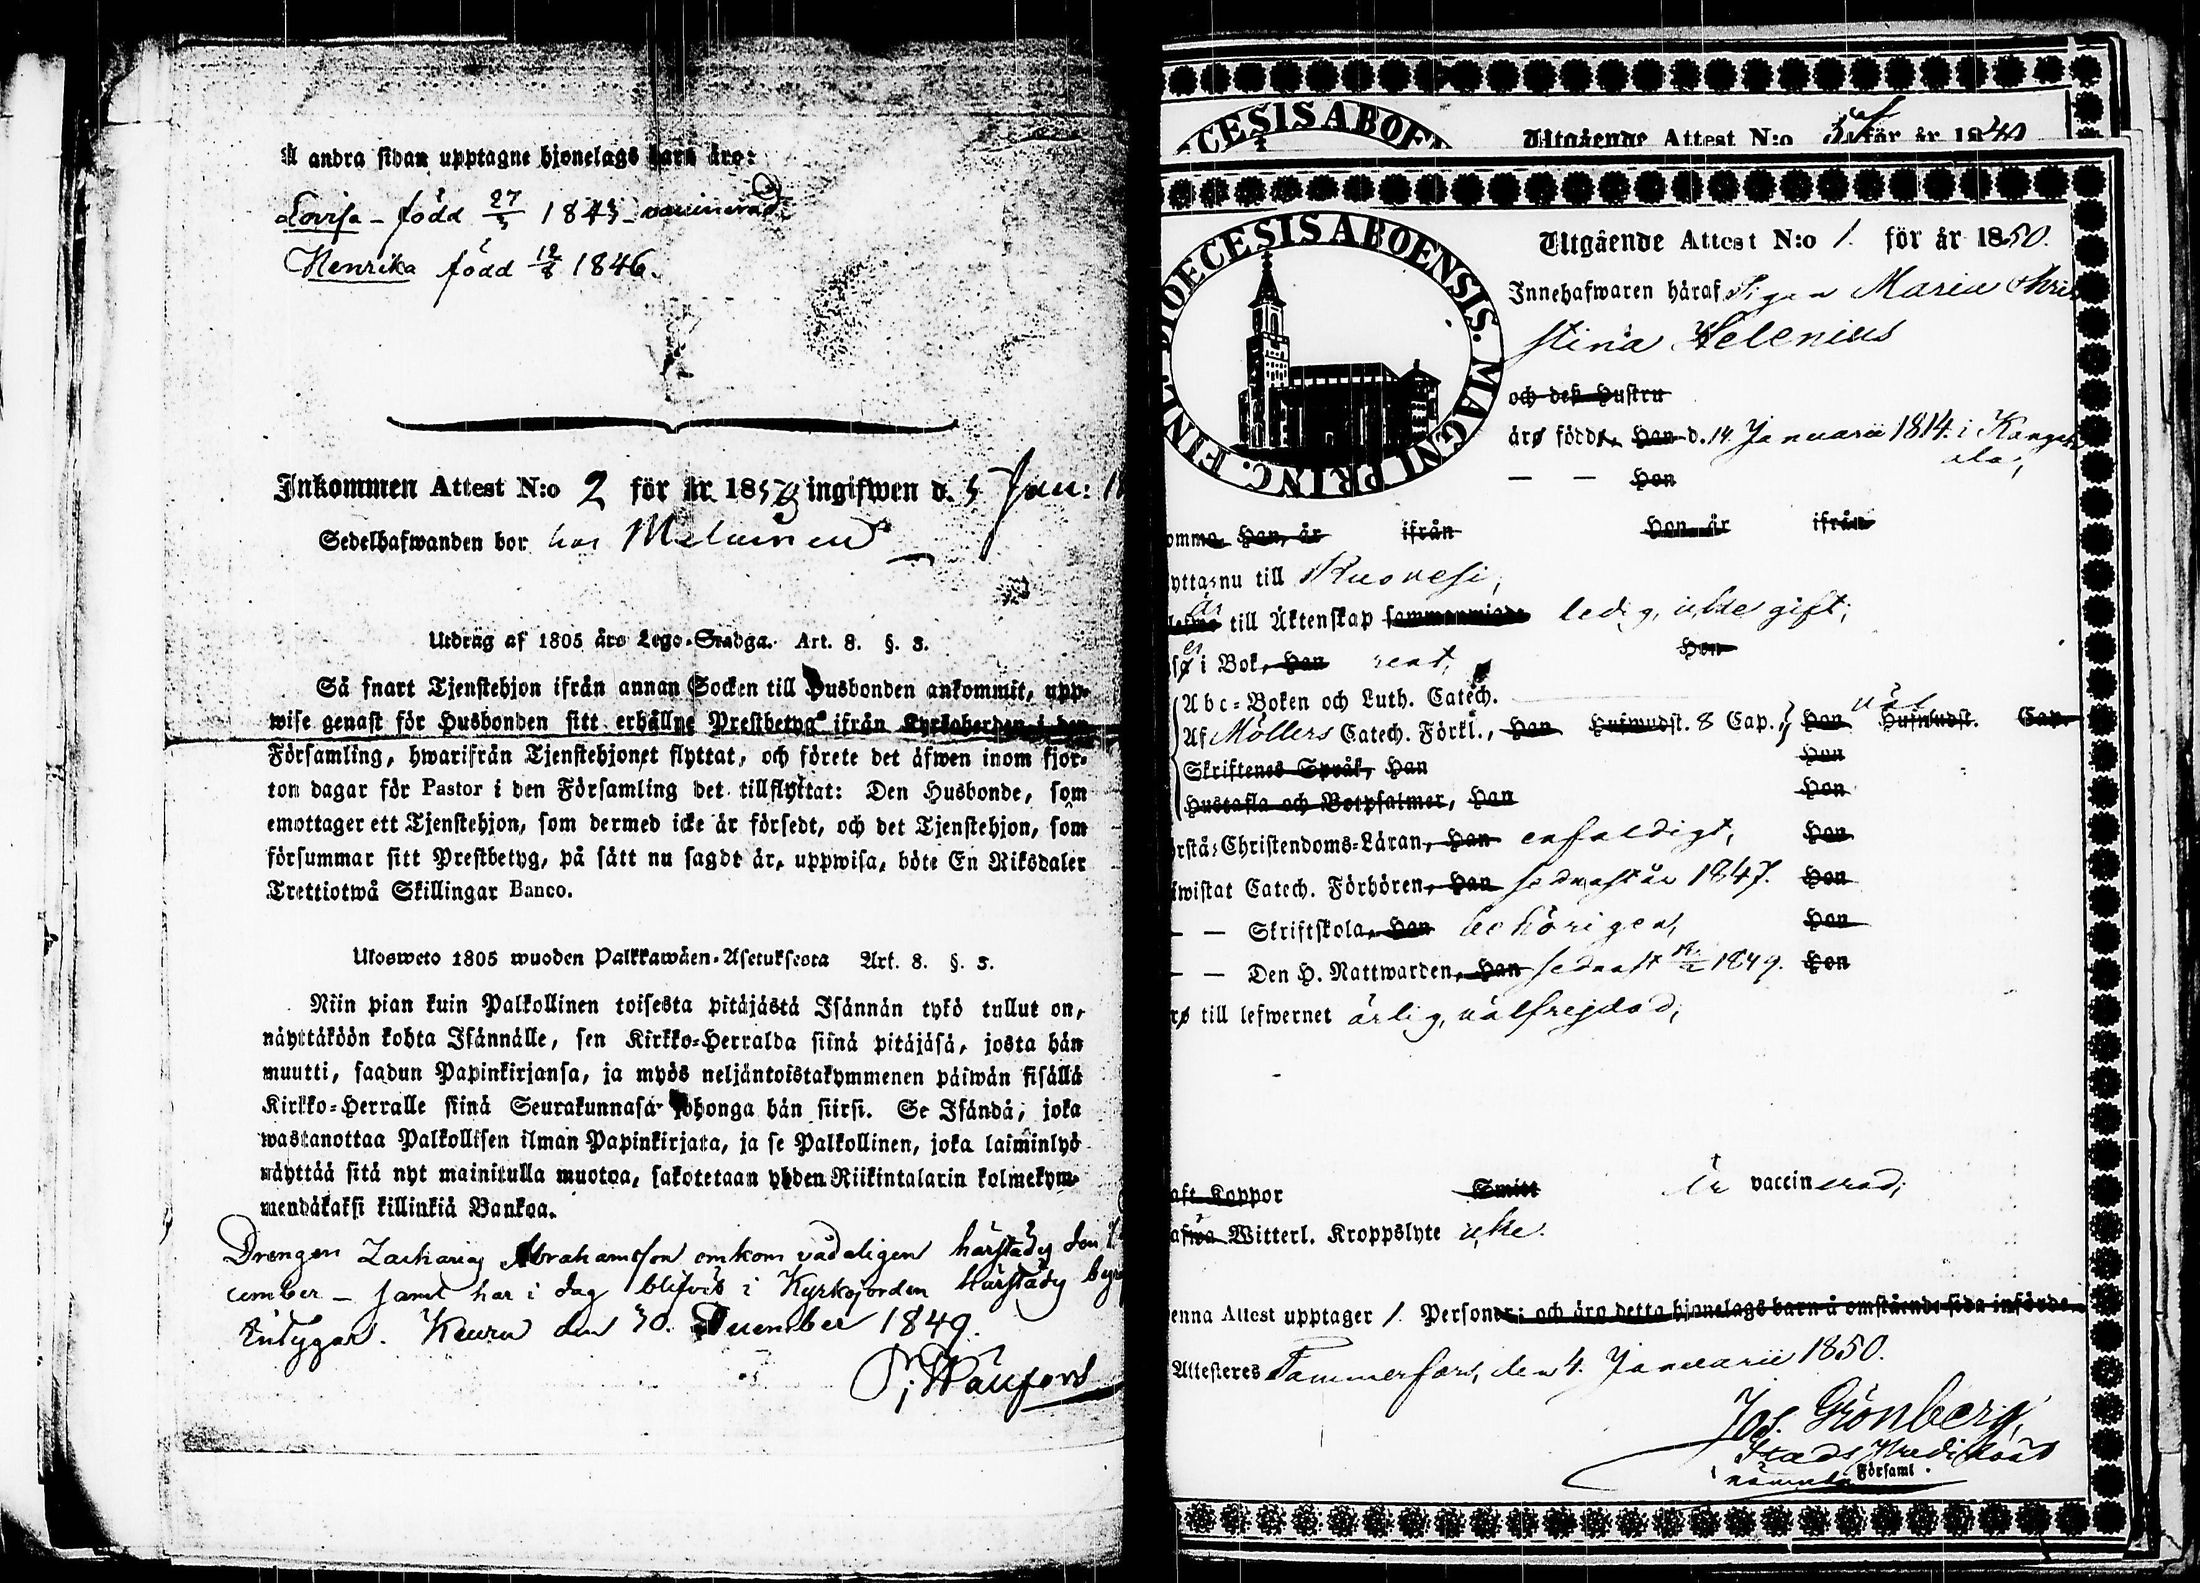 Å andra sidan upptagne hjonelags barn äro:
Lovisa – född 27/3 1843 – vaccinerad
Henrika född 12/8 1846.
Inkommen Attest N:o 2 för år 185 ingifwen d. 5 Jan:
Sedelhafwanden bor hos
Utdrag af 1805 års Lego-Stadga. Art. 8. §. 3.
Så snart Tjenstehjon ifrån annan Socken till Husbonden ankommit, upp-
wise genast för Husbonden sitt erhållne Prestbetyg ifrån Kyrkoherden i den
Församling, hwarifrån Tjenstehjonet flyttat, och förete det äfwen inom fjor-
ton dagar för Pastor i den Församling det tillflyttat: Den Husbonde, som
emottager ett Tjenstehjon, som dermed icke är försedt, och det Tjenstehjon, som
försummar sitt Prestbetyg, på sätt nu sagdt är, uppwisa, böte En Riksdaler
Trettiotwå Skillingar Banco.
Ulosweto 1805 wuoden Palkkawäen-Asetuksesta Art. 8. §. 3.
Niin pian kuin Palkollinen toisesta pitäjästä Isännän tykö tullut on,
näyttäköön kohta Isännälle, sen Kirkko-Herralda siinä pitäjäsä, josta hän
muutti, saadun Papinkirjansa, ja myös neljäntoistakymmenen päiwän sisällä
Kirkko-Herralle siinä Seurakunnasa johonga hän siirsi. Se Isändä, joka
wastanottaa Palkollisen ilman Papinkirjata, ja se Palkollinen, joka laiminlyö
näyttää sitä nyt mainitulla muotoa, sakotetaan yhden Riikintalarin kolmekym-
mendäkaksi killinkiä Bankoa.
Drengen Zacharias Abrahamsson omkom vådeligen härstädes den
cember – samt har i dag blifvit i Kyrkojorden härstädes
Intygar. Keuru den 30. December 1849.
CESIS ABOE
Utgående Attest N:o för år 1840
DIOECESIS ABOENSIS. MAGNI PRINC. FINL.
Utgående Attest N:o 1. för år 1850.
Innehafwaren häraf Pigan Maria Chri
stina Helenius
och desz Hustru
äro födde, Han d. 14 Januarii 1814. i Kanga
ala;
— — Hon
omma, Han, år ifrån Hon, år ifrån
ytta nu till Ruovesi,
är till Äktenskap sammanwigde ledig, icke gift;
er i Bok, Han rent, Hon
Abc-Boken och Luth. Catech.
Af Möllers Catech. Förkl., Han Hufwudst. 8 Cap.; Hon väl Hufwudst. Cap.
Skriftenes Språk, Han Hon
Hustafla och Botpsalmer, Han Hon
rstå Christendoms-Läran, Han enfaldigt, Hon
iwistat Catech. Förhören, Han sednast år 1847. Hon
— — Skriftskola, Han behörigen, Hon
— — Den H. Nattwarden, Han sednast 1849. Hon
till lefwernet ärlig, välfrejdad;
aft Koppor Smitt är vaccinerad;
afwa Witterl. Kroppslyte icke.
enna Attest upptager 1. Personer; och äro detta hjonelags barn å omstående sida införde.
Attesteres Tammerfors, den 4. Januarii 1850.
Jos. Grönberg,
Stads Predikant
i nämnda Församl.